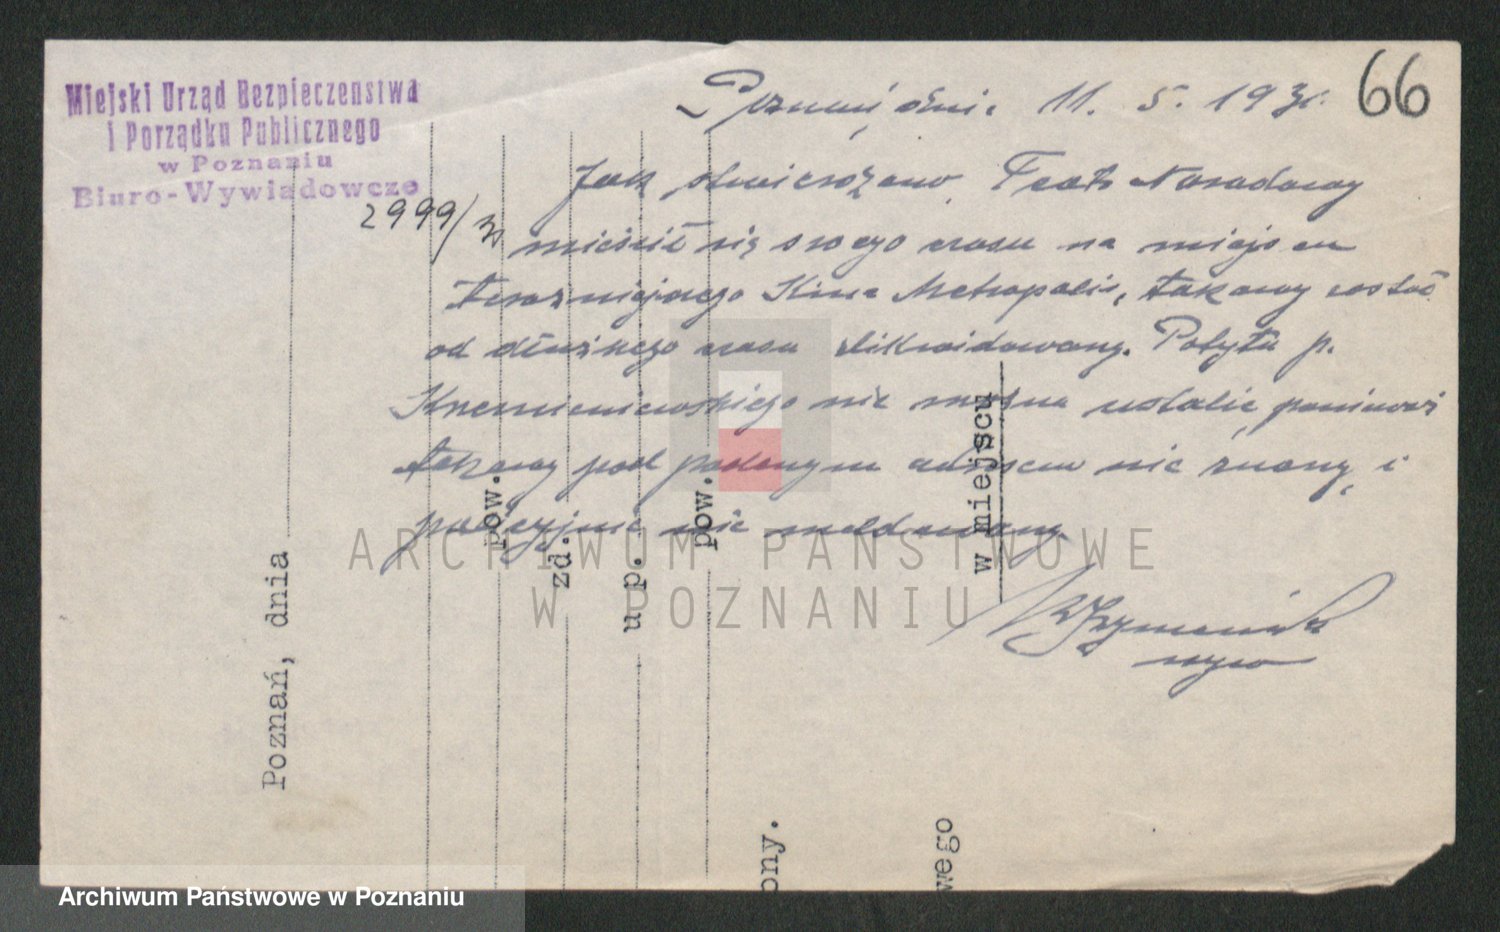 Miejski Urząd Bezpieczenstwa
i Porządku Publicznego
w Poznaniu
Biuro-Wywiadowcze
2999/31
66
Poznań dnia 11. 5. 1931.
Jak stwierdzono Teatr Narodowy
mieścił się swego czasu na miejscu
teraźniejszego Kina Metropolis, takowy został
od dłuższego czasu zlikwidowany. Pobytu p.
nie można ustalić ponieważ
takowy pod podanym adresem nie znany i
policyjnie nie meldowany.
wyw
Poznań, dnia
pow.
zd.
u p.
pow.
w miejscu
ony.
wego
ARCHIWUM PAŃSTWOWE
W POZNANIU
Archiwum Państwowe w Poznaniu